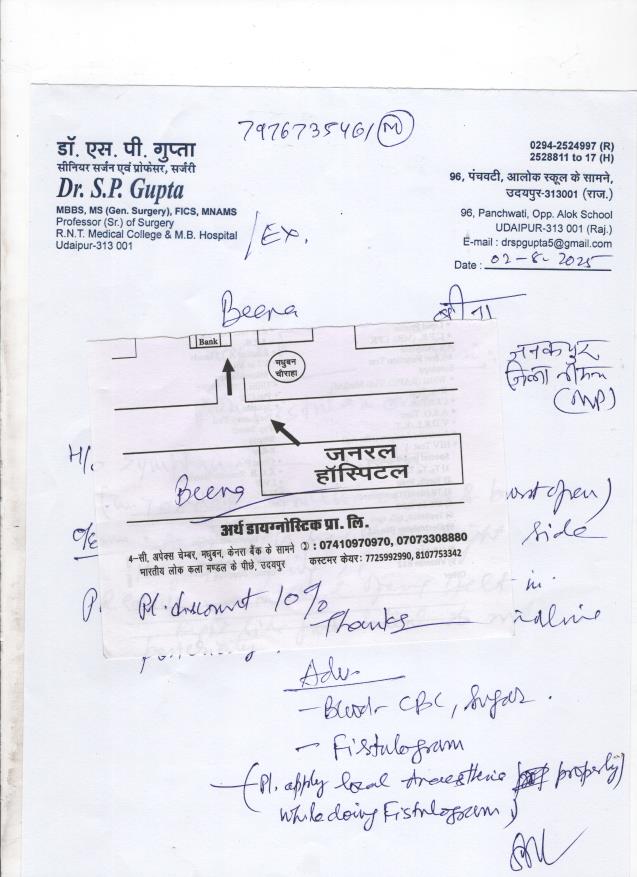 7976735461 (M)
डॉ. एस. पी. गुप्ता
सीनियर सर्जन एवं प्रोफेसर, सर्जरी
Dr. S.P. Gupta
MBBS, MS (Gen. Surgery), FICS, MNAMS
Professor (Sr.) of Surgery
R.N.T. Medical College & M.B. Hospital
Udaipur-313 001
0294-2524997 (R)
2528811 to 17 (H)
96, पंचवटी, आलोक स्कूल के सामने,
उदयपुर-313001 (राज.)
96, Panchwati, Opp. Alok School
UDAIPUR-313 001 (Raj.)
E-mail : drspgupta5@gmail.com
Date : 02-8-2025
/Ex.
Beena बीना
जनकपुर
जिला
(MP)
Bank
मधुबन
चौराहा
जनरल
हॉस्पिटल
H/.
Beena
burst open)
O/E
side
अर्थ डायग्नोस्टिक प्रा. लि.
4-सी, अपेक्स चेम्बर, मधुबन, केनरा बैंक के सामने : 07410970970, 07073308880
भारतीय लोक कला मण्डल के पीछे, उदयपुर कस्टमर केयर: 7725992990, 8107753342
in
Pl. discount 10%
Thanks
midline
Adv.
- Blood- CBC, Sugar.
- Fistulogram
(Pl. apply local Anaesthesia properly)
while doing Fistulogram)